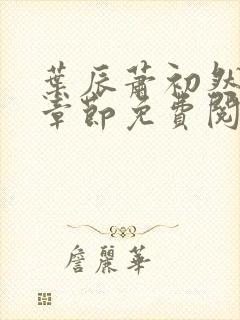 葉辰蕭初然
章節免費閱
詹麗華